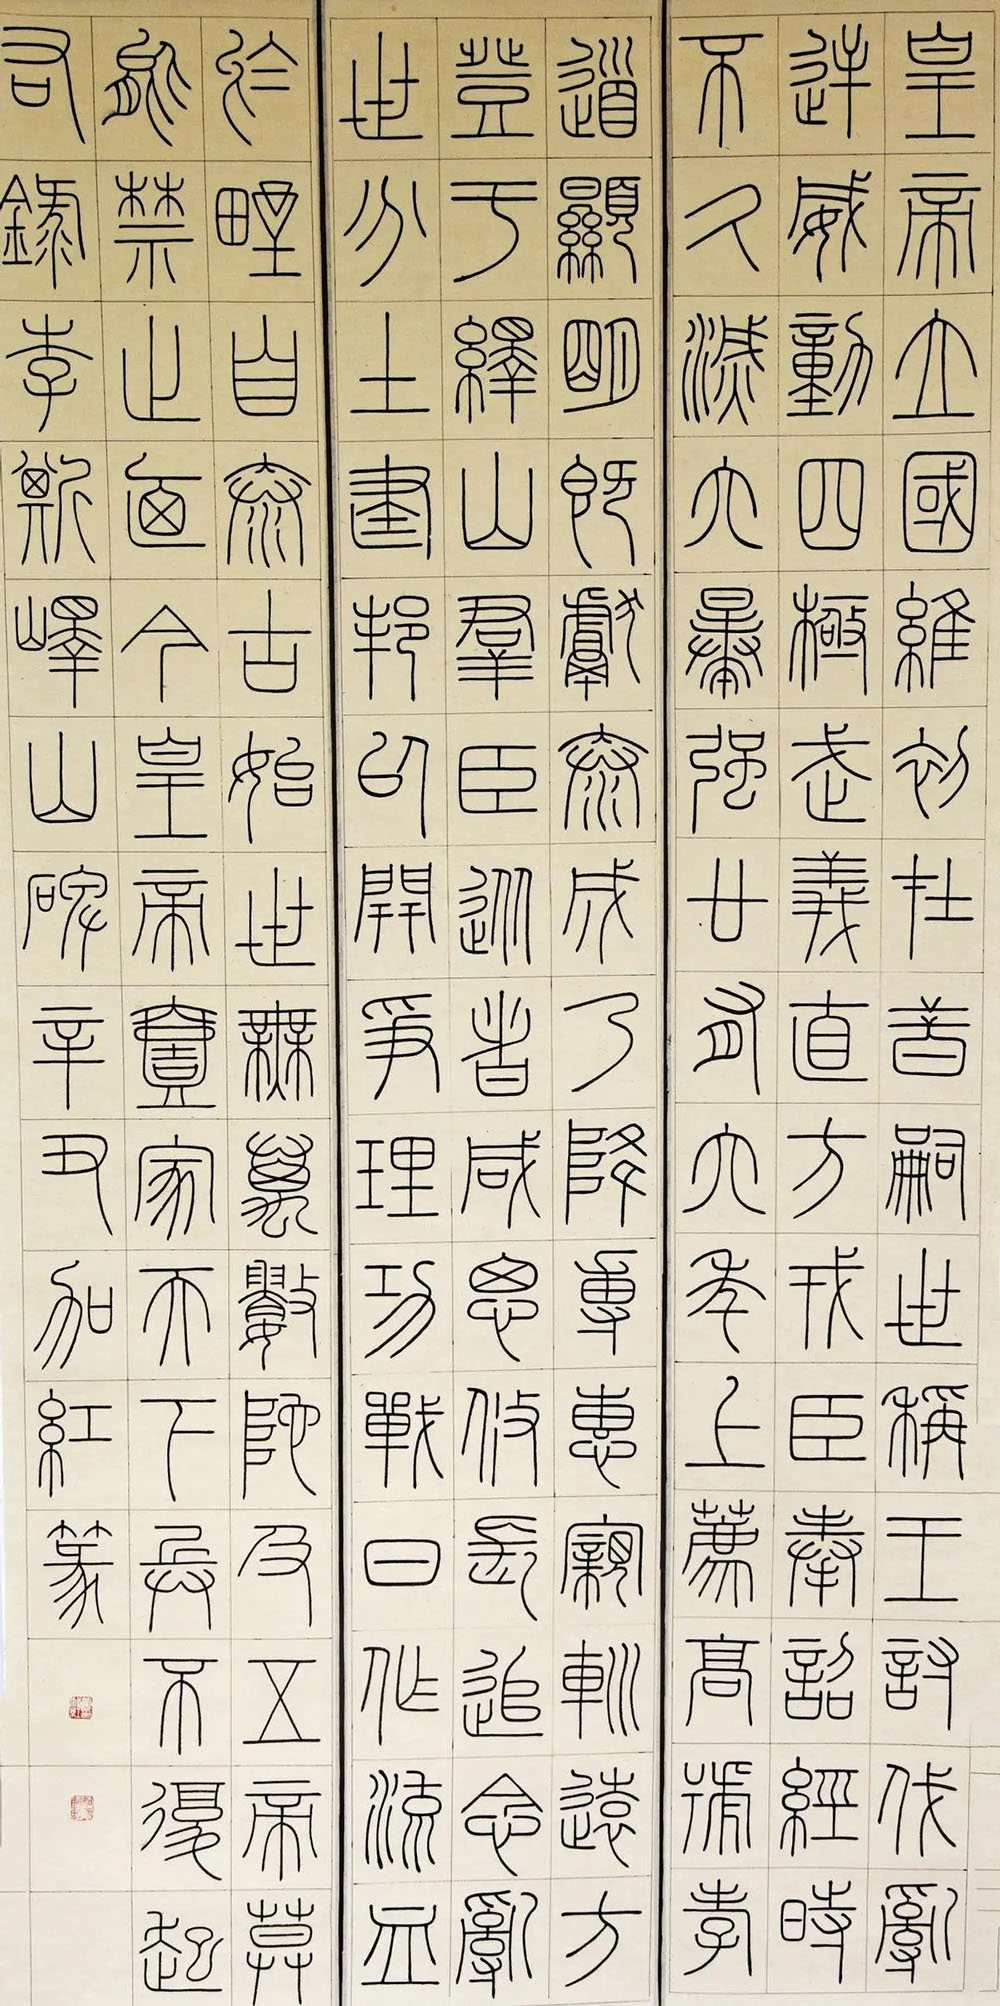 皇帝立國維初在昔嗣世稱王討伐亂
逆威動四極武義直方戎臣奉詔經時
不久滅六暴強廿有六年上薦高號孝
道顯明既獻泰成乃降專惠親巡遠方
登于繹山群臣從者咸思攸長追念亂
世分土建邦以開爭理功戰日作流血
於野自泰古始世無萬數陀及五帝莫
能禁止廼今皇帝壹家天下兵不復起
右錄李斯嶧山碑辛丑加紅篆